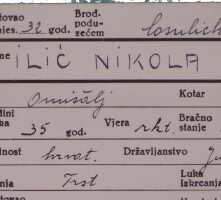 tovao Brod-
jes. 32 god. podu-
zećem Cosulich
me ILIĆ NIKOLA
Omišalj Kotar
dini
ka 35 god. Vjera rkt. Bračno
stanje
dnost hrvat. Državljanstvo Ju
nja Trst Luka
iskrcanja